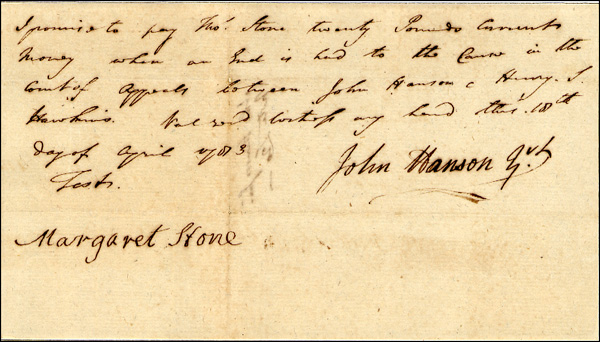 I promise to pay Thos. Stone twenty Pounds Current
Money when an End is had to the Cause in the
Court of Appeals between John Hanson & Henry S.
Hawkins. Val recd witness my hand this 18th
day of April 1783
Test.
John Hanson Yr.
Margaret Stone